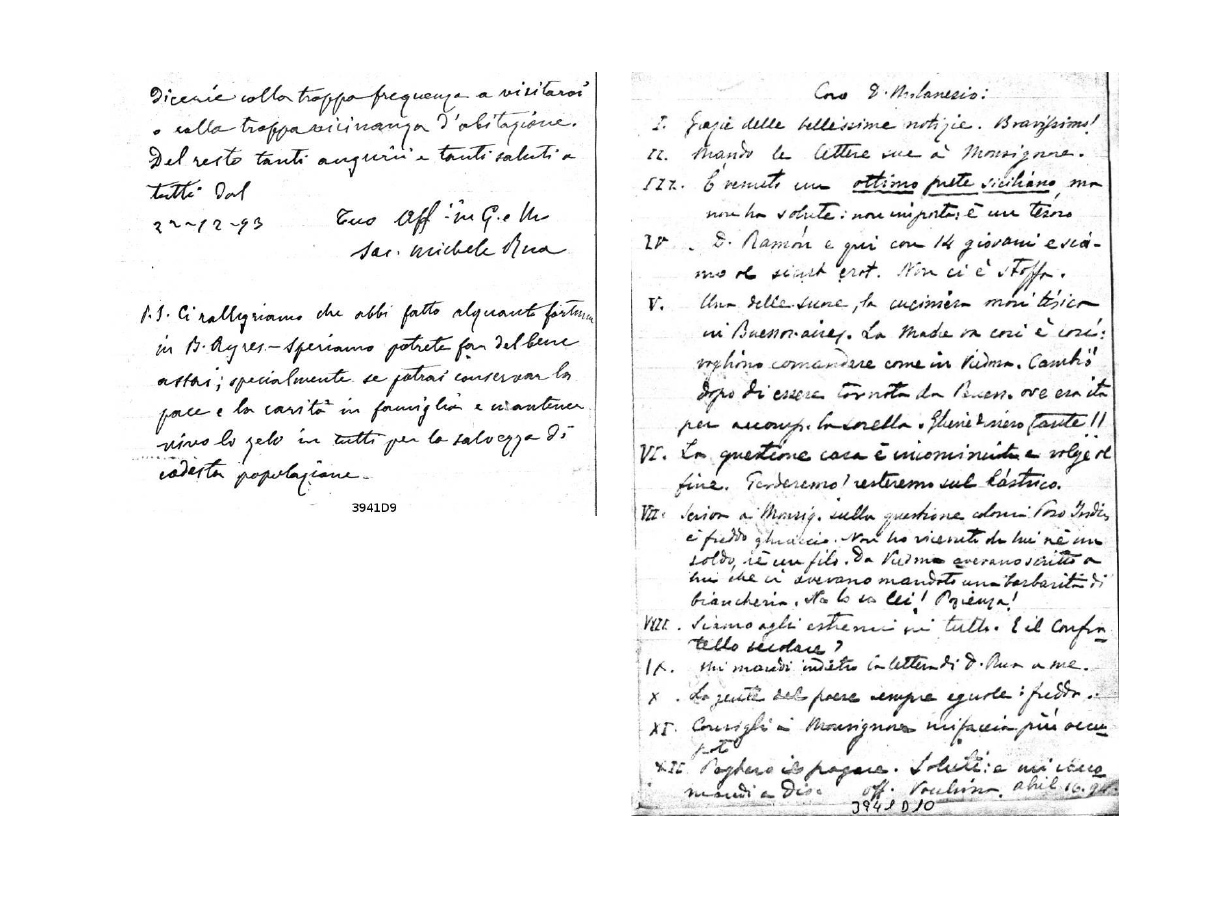 dicerie colla troppa frequenza a visitarvi
o colla troppa vicinanza d'abitazione.
Del resto tanti augurii e tanti saluti a
tutti dal
22-12-93 Tuo Aff in G. e M.
Sac. Michele Rua
P.S. Ci rallegriamo che abbi fatto alquanto fortuna
in B. Ayres. - Speriamo potrete far del bene
assai; specialmente se potrai conservar la
pace e la carità in famiglia e mantener
vivo lo zelo in tutti per la salvezza di
codesta popolazione.
3941D9
Caro D. Milanesio:
I. Grazie delle bellissime notizie. Bravissimo!
II. Mando le lettere sue a Monsignore.
III. È venuto un ottimo prete siciliano, ma
non ha salute: non importa; è un tesoro
IV. D. Ramón è qui con 14 giovani e sia-
mo al sicut erat. Non ci è stoffa.
V. Una delle suore, la cuciniera morì tisica
in Buenos-aires. La Madre va così è così:
vogliono comandare come in Viedma. Cambiò
dopo di essere tornata da Buenos. ove era ita
per accomp. la sorella. Gliene diedero tante!!
VI. La questione casa è incominciata e volge al
fine. Perderemo! resteremo sul lástrico.
VII. Scrissi a Monsig. sulla questione coloni
è freddo ghiaccio. Non ho ricevuto da lui nè un
soldo, nè un filo. Da Viedma avevano scritto a
lui che ci avevano mandato una barbarità di
biancheria. Ma lo sa lei! Pazienza!
VIII. Siamo agli estremi in tutto. E il Confra-
tello secolare?
IX. Mi mandi indietro la lettera di D. Rua a me.
X. La gente del paese sempre eguale: fredda..
XI. Consigli a Monsignore mi faccia più
XII. pagare. Saluti: e mi
mandi a Dio. aff. abril 16.
3941D10